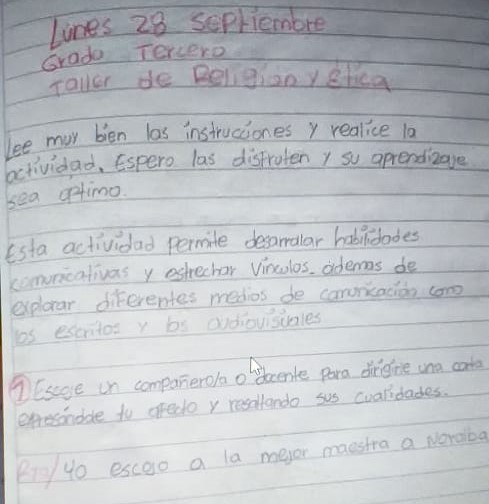 Lunes 28 septiembre
Grado Tercero
Taller de Religion y ética
Lee muy bien las instrucciones y realice la
actividad. Espero las disfruten y su aprendizaje
sea optimo.
Esta actividad permite desarrolar habilidades
comunicativas y estrechar vinculos. ademas de
explorar diferentes medios de comunicación como
los escritos y los audiovisuales
① Escoje un compañero/a o docente para dirigirle una carta
expresandole tu afecto y resaltando sus cualidades.
yo escojo a la mejor maestra a